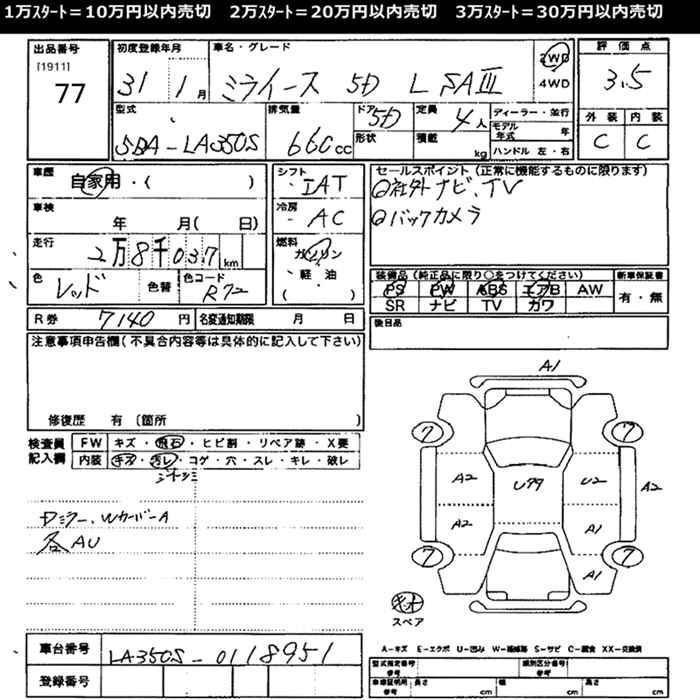 1万ｽﾀｰﾄ＝10万円以内売切　2万ｽﾀｰﾄ＝20万円以内売切　3万ｽﾀｰﾄ＝30万円以内売切
出品番号
[1911]
77
初度登録年月
31 1月
車名・グレード
ミライース 5D L SAⅢ
2WD
4WD
評価点
3.5
外装 内装
C C
型式
5BA-LA350S
排気量
660cc
ドア 5D
形状
定員 4人
積載 kg
ディーラー・並行
モデル年式 年
ハンドル 左・右
車歴
自家用・( )
車検
年 月( 日)
走行
2万8千037km
色
レッド
色替
色コード
R72
シフト
IAT
冷房
AC
燃料
ガソリン
・軽油
( )
セールスポイント (正常に機能するものに限ります)
社外ナビ、TV
バックカメラ
装備品 (純正品に限り○をつけてください)
PS PW ABS エアB AW
SR ナビ TV カワ
新車保証書
有・無
後日品
R券 7140円
名変通知期限 月 日
注意事項申告欄 (不具合内容等は具体的に記入して下さい)
修復歴 有 〔箇所
検査員記入欄
FW キズ・飛石・ヒビ割・リペア跡・X要
内装 キズ・汚レ・コゲ・穴・スレ・キレ・破レ
Dミラー、WカバーA
各AU
A1
7 7
A2 U79 U2 A2
A2 A1
7 7
A1
キット
スペア
A－キズ E－エクボ U－凹み W－補修跡 S－サビ C－腐食 XX－交換済
車台番号
LA350S-0118951
登録番号
型式指定番号 参考
類別区分番号 参考
車庫証明用 参考
長さ cm
幅 cm
高さ cm